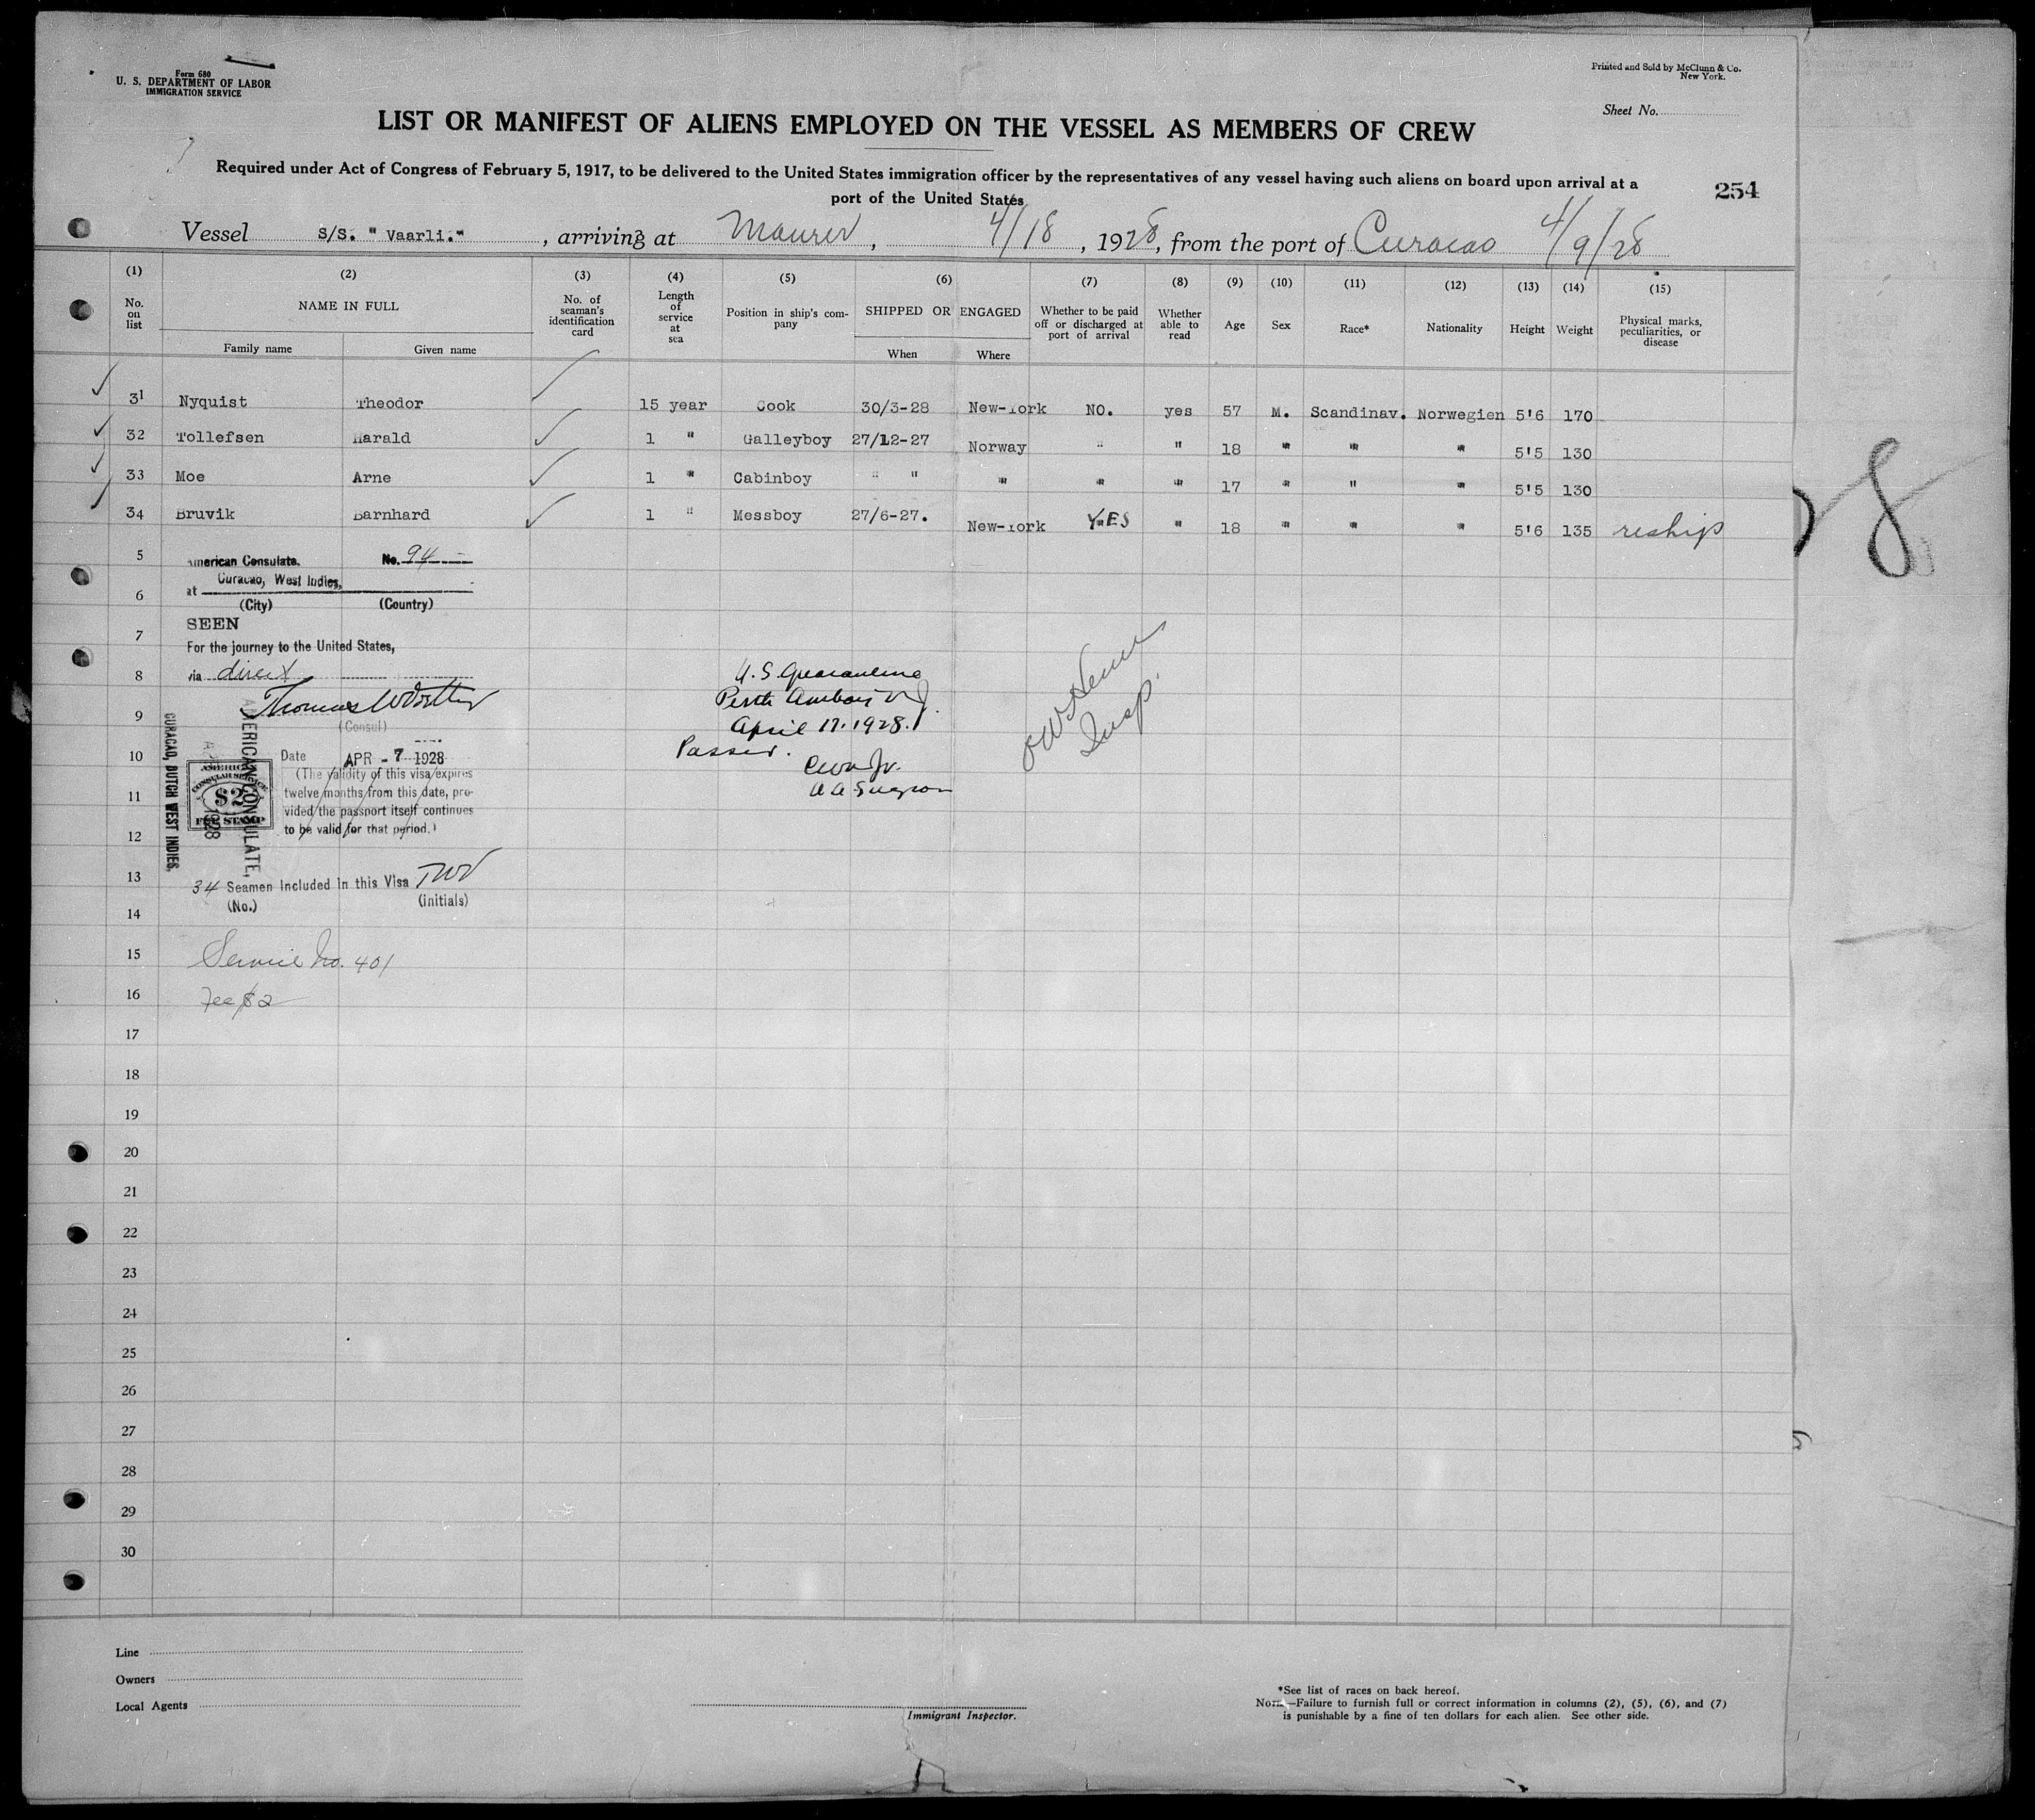 Form 680
U. S. DEPARTMENT OF LABOR
IMMIGRATION SERVICE
Printed and Sold by McClunn & Co.
New York.
Sheet No.
LIST OR MANIFEST OF ALIENS EMPLOYED ON THE VESSEL AS MEMBERS OF CREW
Required under Act of Congress of February 5, 1917, to be delivered to the United States immigration officer by the representatives of any vessel having such aliens on board upon arrival at a
port of the United States
254
Vessel S/S. "Vaarli." , arriving at Maurer , 4/18 , 1928, from the port of Curacao 4/9/28
(1) (2) (3) (4) (5) (6) (7) (8) (9) (10) (11) (12) (13) (14) (15)
No. on list NAME IN FULL No. of seaman's identification card Length of service at sea Position in ship's company SHIPPED OR ENGAGED Whether to be paid off or discharged at port of arrival Whether able to read Age Sex Race* Nationality Height Weight Physical marks, peculiarities, or disease
Family name Given name When Where
31 Nyquist Theodor 15 year Cook 30/3-28 New-York NO. yes 57 M. Scandinav. Norwegien 5'6 170
32 Tollefsen Harald 1 " Galleyboy 27/12-27 Norway " " 18 " " " 5'5 130
33 Moe Arne 1 " Cabinboy " " " " " 17 " " " 5'5 130
34 Bruvik Barnhard 1 " Messboy 27/6-27. New-York YES " 18 " " " 5'6 135 reship
5 American Consulate. No. 94
6 at Curacao, West Indies,
(City) (Country)
SEEN
7 For the journey to the United States,
8 via direct
U. S. Quarantine
Perth Amboy N J.
9
(Consul)
April 17. 1928.
Passed.
Insp.
10 Date APR - 7 1928
(The validity of this visa expires
11 twelve months from this date, pro-
vided the passport itself continues
12 to be valid for that period.)
A A Surgeon
AMERICAN CONSULATE,
CURACAO, DUTCH WEST INDIES.
1928
AMERICAN
CONSULAR SERVICE
$2
FEE STAMP
13 34 Seamen Included in this Visa TWV
(No.) (initials)
14
15 Service No. 401
16 Fee $2
17
18
19
20
21
22
23
24
25
26
27
28
29
30
8
Line
Owners
Local Agents
Immigrant Inspector.
*See list of races on back hereof.
NOTE—Failure to furnish full or correct information in columns (2), (5), (6), and (7)
is punishable by a fine of ten dollars for each alien. See other side.